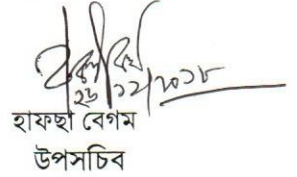 ২৬/১২/২০১৮
হাফছা বেগম
উপসচিব